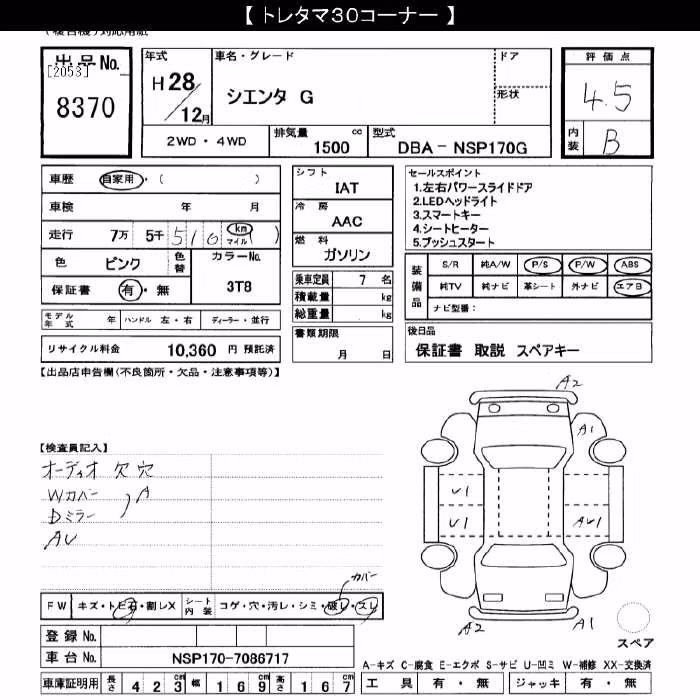 【 トレタマ30コーナー 】
(複合機)対応用紙
出品No.
[2053]
8370
年式
H 28/12月
車名・グレード
シエンタ G
ドア
形状
評価点
4.5
内装
B
2WD・4WD
排気量
1500 cc
型式
DBA－NSP170G
車歴 自家用・( )
車検 年 月
走行 7万 5千 510 (km マイル)
色 ピンク
色替
カラーNo.
3T8
保証書 有・無
モデル年式 年 ハンドル 左・右 ディーラー・並行
リサイクル料金 10,360 円 預託済
シフト
IAT
冷房
AAC
燃料
ガソリン
乗車定員 7 名
積載量 kg
総重量 kg
書類期限
月 日
セールスポイント
1.左右パワースライドドア
2.LEDヘッドライト
3.スマートキー
4.シートヒーター
5.プッシュスタート
装備品
S/R 純A/W P/S P/W ABS
純TV 純ナビ 革シート 外ナビ エアB
ナビ型番：
後日品
保証書 取説 スペアキー
【出品店申告欄(不良箇所・欠品・注意事項等)】
【検査員記入】
オーディオ 欠 穴
Wカバー
Dミラー
A
AU
カバー
FW キズ・トビ石・割レX
シート内装 コゲ・穴・汚レ・シミ・破レ・スレ
登録No.
車台No. NSP170-7086717
車庫証明用 長さ 423cm 幅 169cm 高さ 167cm
A2
A1
U1
U1
AU1
A2
A1
スペア
A-キズ C-腐食 E-エクボ S-サビ U-凹ミ W-補修 XX-交換済
工具 有・無 ジャッキ 有・無